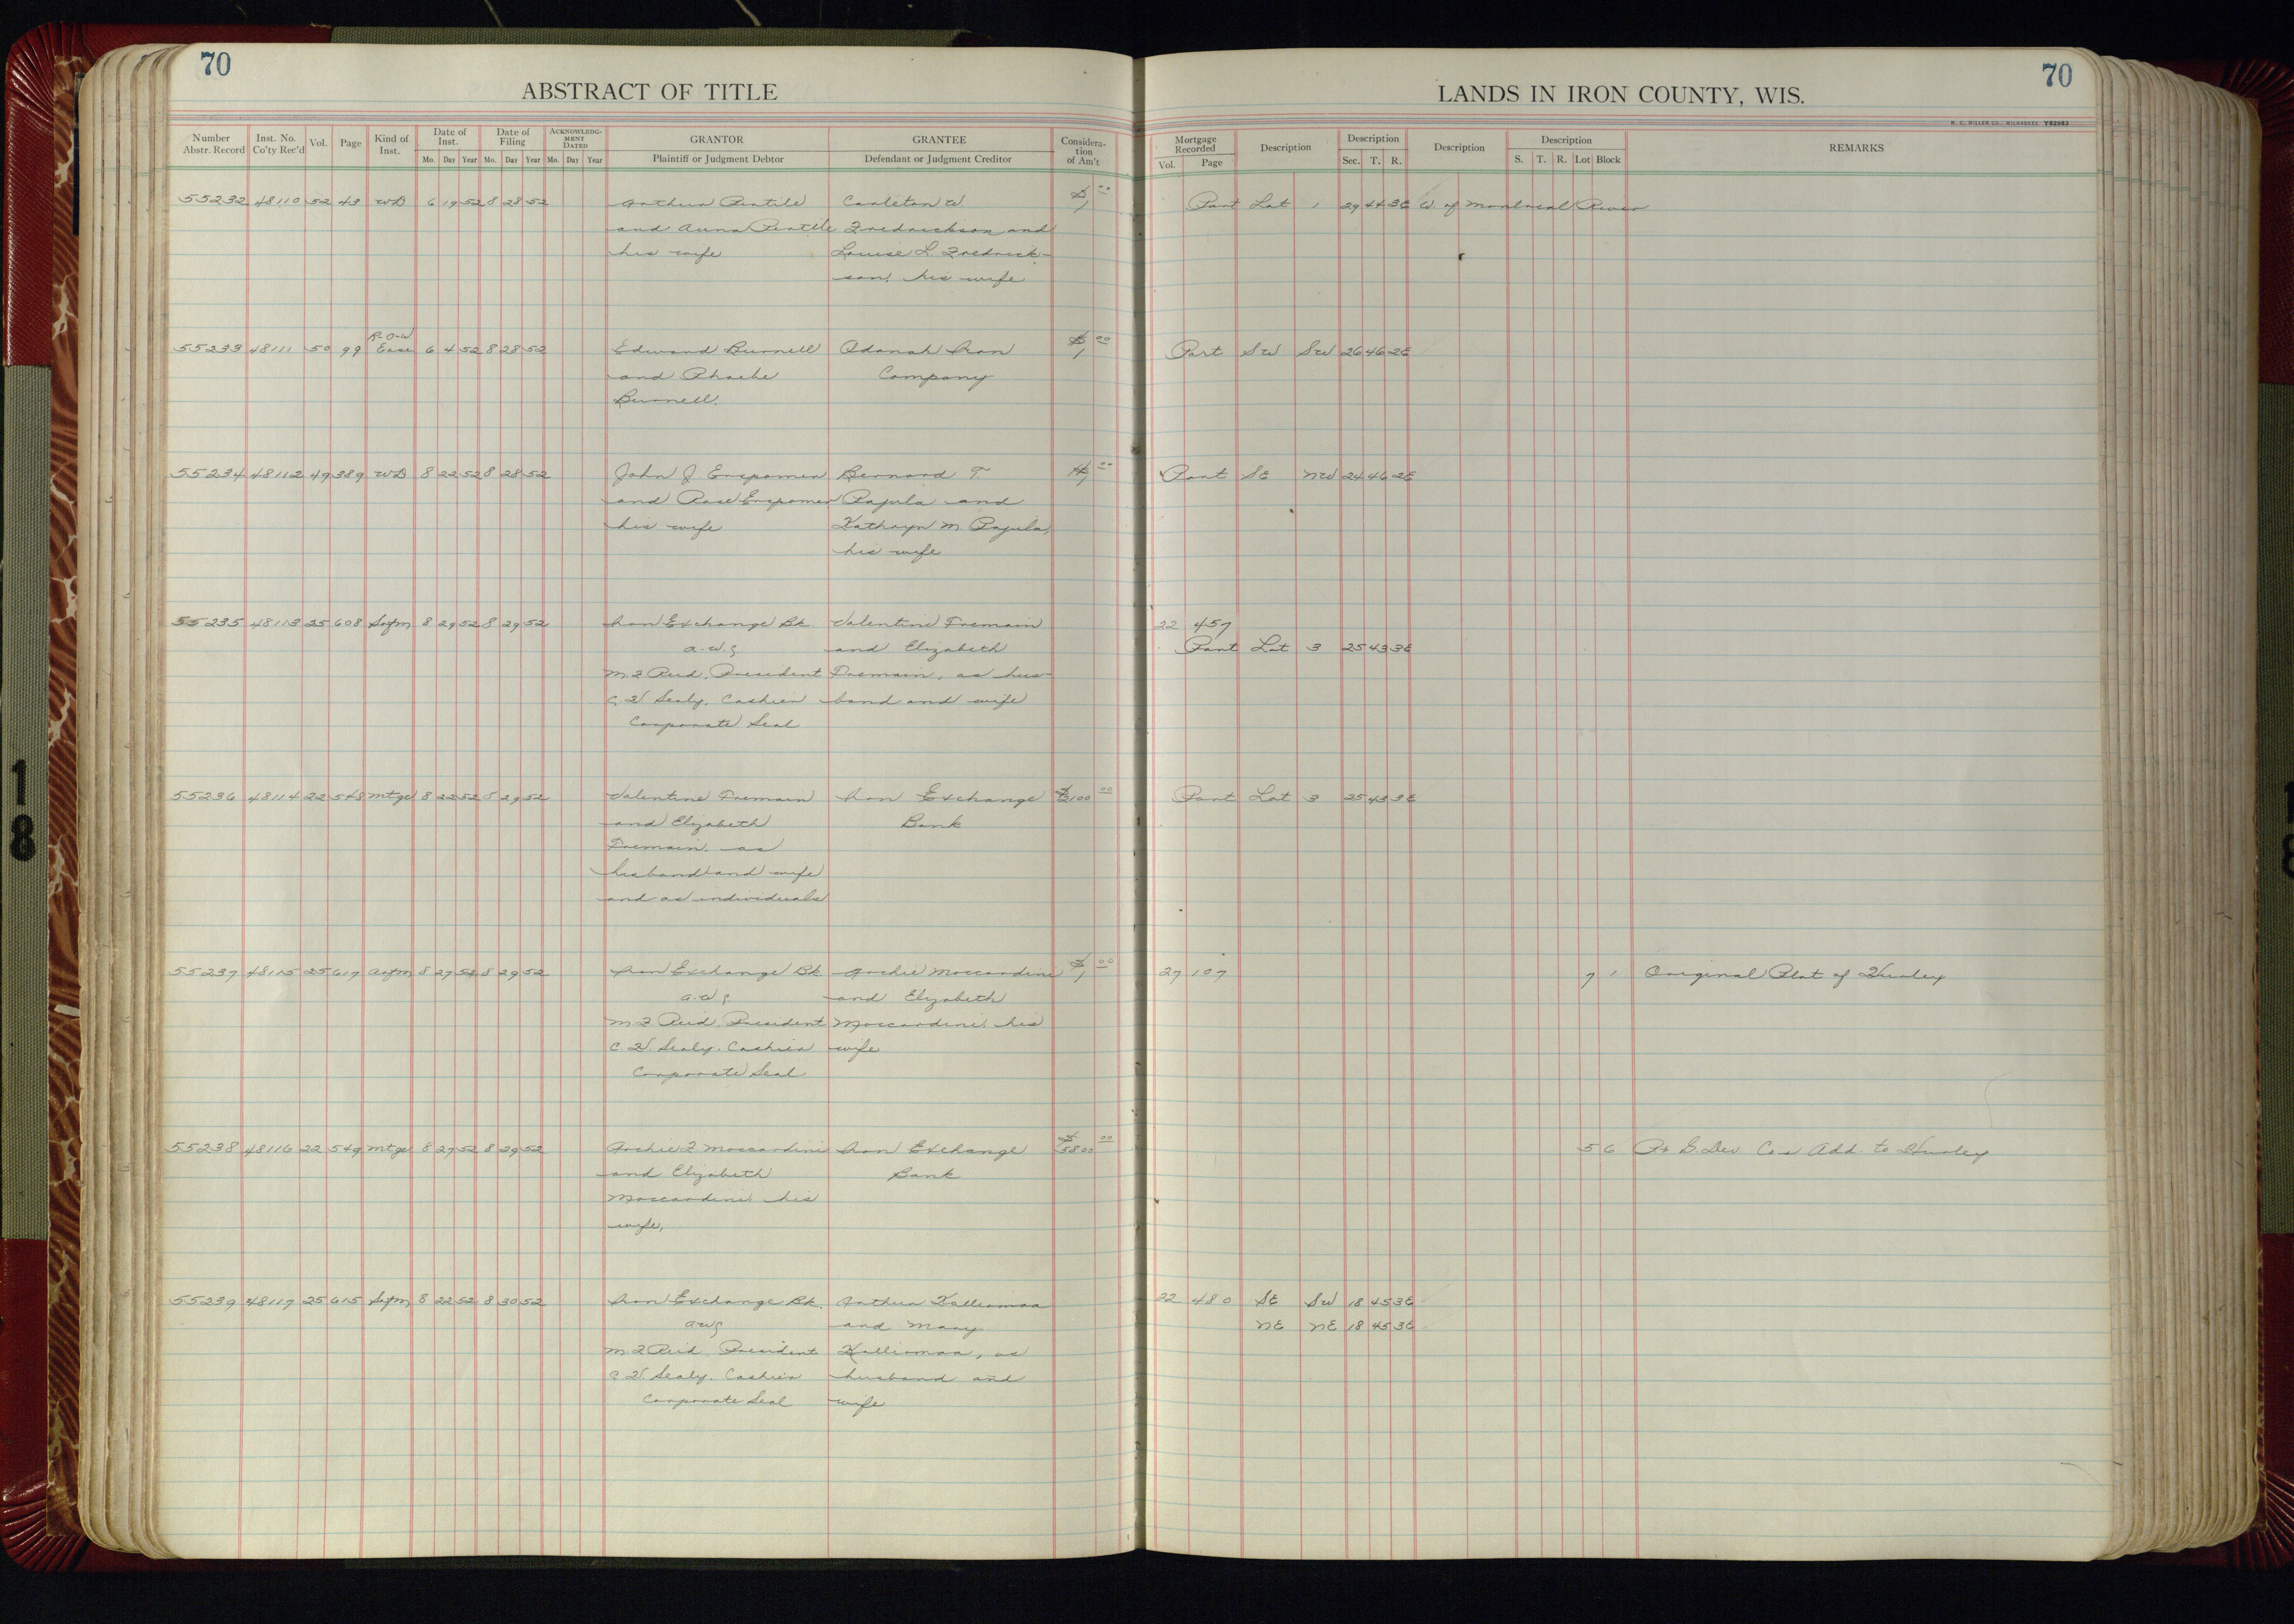 70
ABSTRACT OF TITLE
Number Abstr. Record Inst. No. Co'ty Rec'd Vol. Page Kind of Inst. Date of Inst. Mo. Day Year Date of Filing Mo. Day Year ACKNOWLEDGMENT DATED Mo. Day Year GRANTOR Plaintiff or Judgment Debtor GRANTEE Defendant or Judgment Creditor Consideration of Am't
70
LANDS IN IRON COUNTY, WIS.
H. C. MILLER CO., MILWAUKEE Y62983
Mortgage Recorded Vol. Page Description Description Sec. T. R. Description Description S. T. R. Lot Block REMARKS
55232 48110 52 43 WD 6 19 52 8 28 52 Carleton W $1 00 Part Lot 1 29 44 3E W. of Montreal River
and Fredrickson and
his wife Louise L. Fredrick-
son, his wife
R-O-W
55233 48111 50 99 Ease 6 4 52 8 28 52 Edward Burnell Odanah Iron $1 00 Part SW SW 26 46 2E
and Phoebe Company
Burnell.
55234 48112 49 389 WD 8 22 52 8 28 52 John J. Bernard T. $1 00 Part SE NW 24 46 2E
and Rose Rajula and
his wife Kathryn M. Rajula,
his wife
55235 48113 25 608 Satm 8 29 52 8 29 52 Iron Exchange Bk. Valentine Tremain 22 457
and Elizabeth Part Lot 3 25 43 3E
M.F. Reid, President Tremain, as hus-
C.V. Sealy, Cashier band and wife
Corporate Seal
55236 48114 22 548 Mtge 8 22 52 8 29 52 Valentine Tremain Iron Exchange 00 Part Lot 3 25 43 3E
and Elizabeth Bank
Tremain, as
husband and wife
and as individuals
55237 48115 25 617 8 27 52 8 29 52 Iron Exchange Bk. Archie Moccardini $1 00 27 107 7 1 Original Plat of Hurley
and Elizabeth
M.F. Reid, President Moccardini, his
C.V. Sealy, Cashier wife
Corporate Seal
55238 48116 22 549 Mtge 8 27 52 8 29 52 Archie F. Moccardini Iron Exchange $5800 00 5 6 Dev. Co's Add. to Hurley
and Elizabeth Bank
Moccardini, his
wife,
55239 48117 25 615 Satm 8 22 52 8 30 52 Iron Exchange Bk. Kalliomaa 22 480 SE SW 18 45 3E
and Mary NE NE 18 45 3E
M.F. Reid, President Kalliomaa, as
C.V. Sealy, Cashier husband and
Corporate Seal wife
18